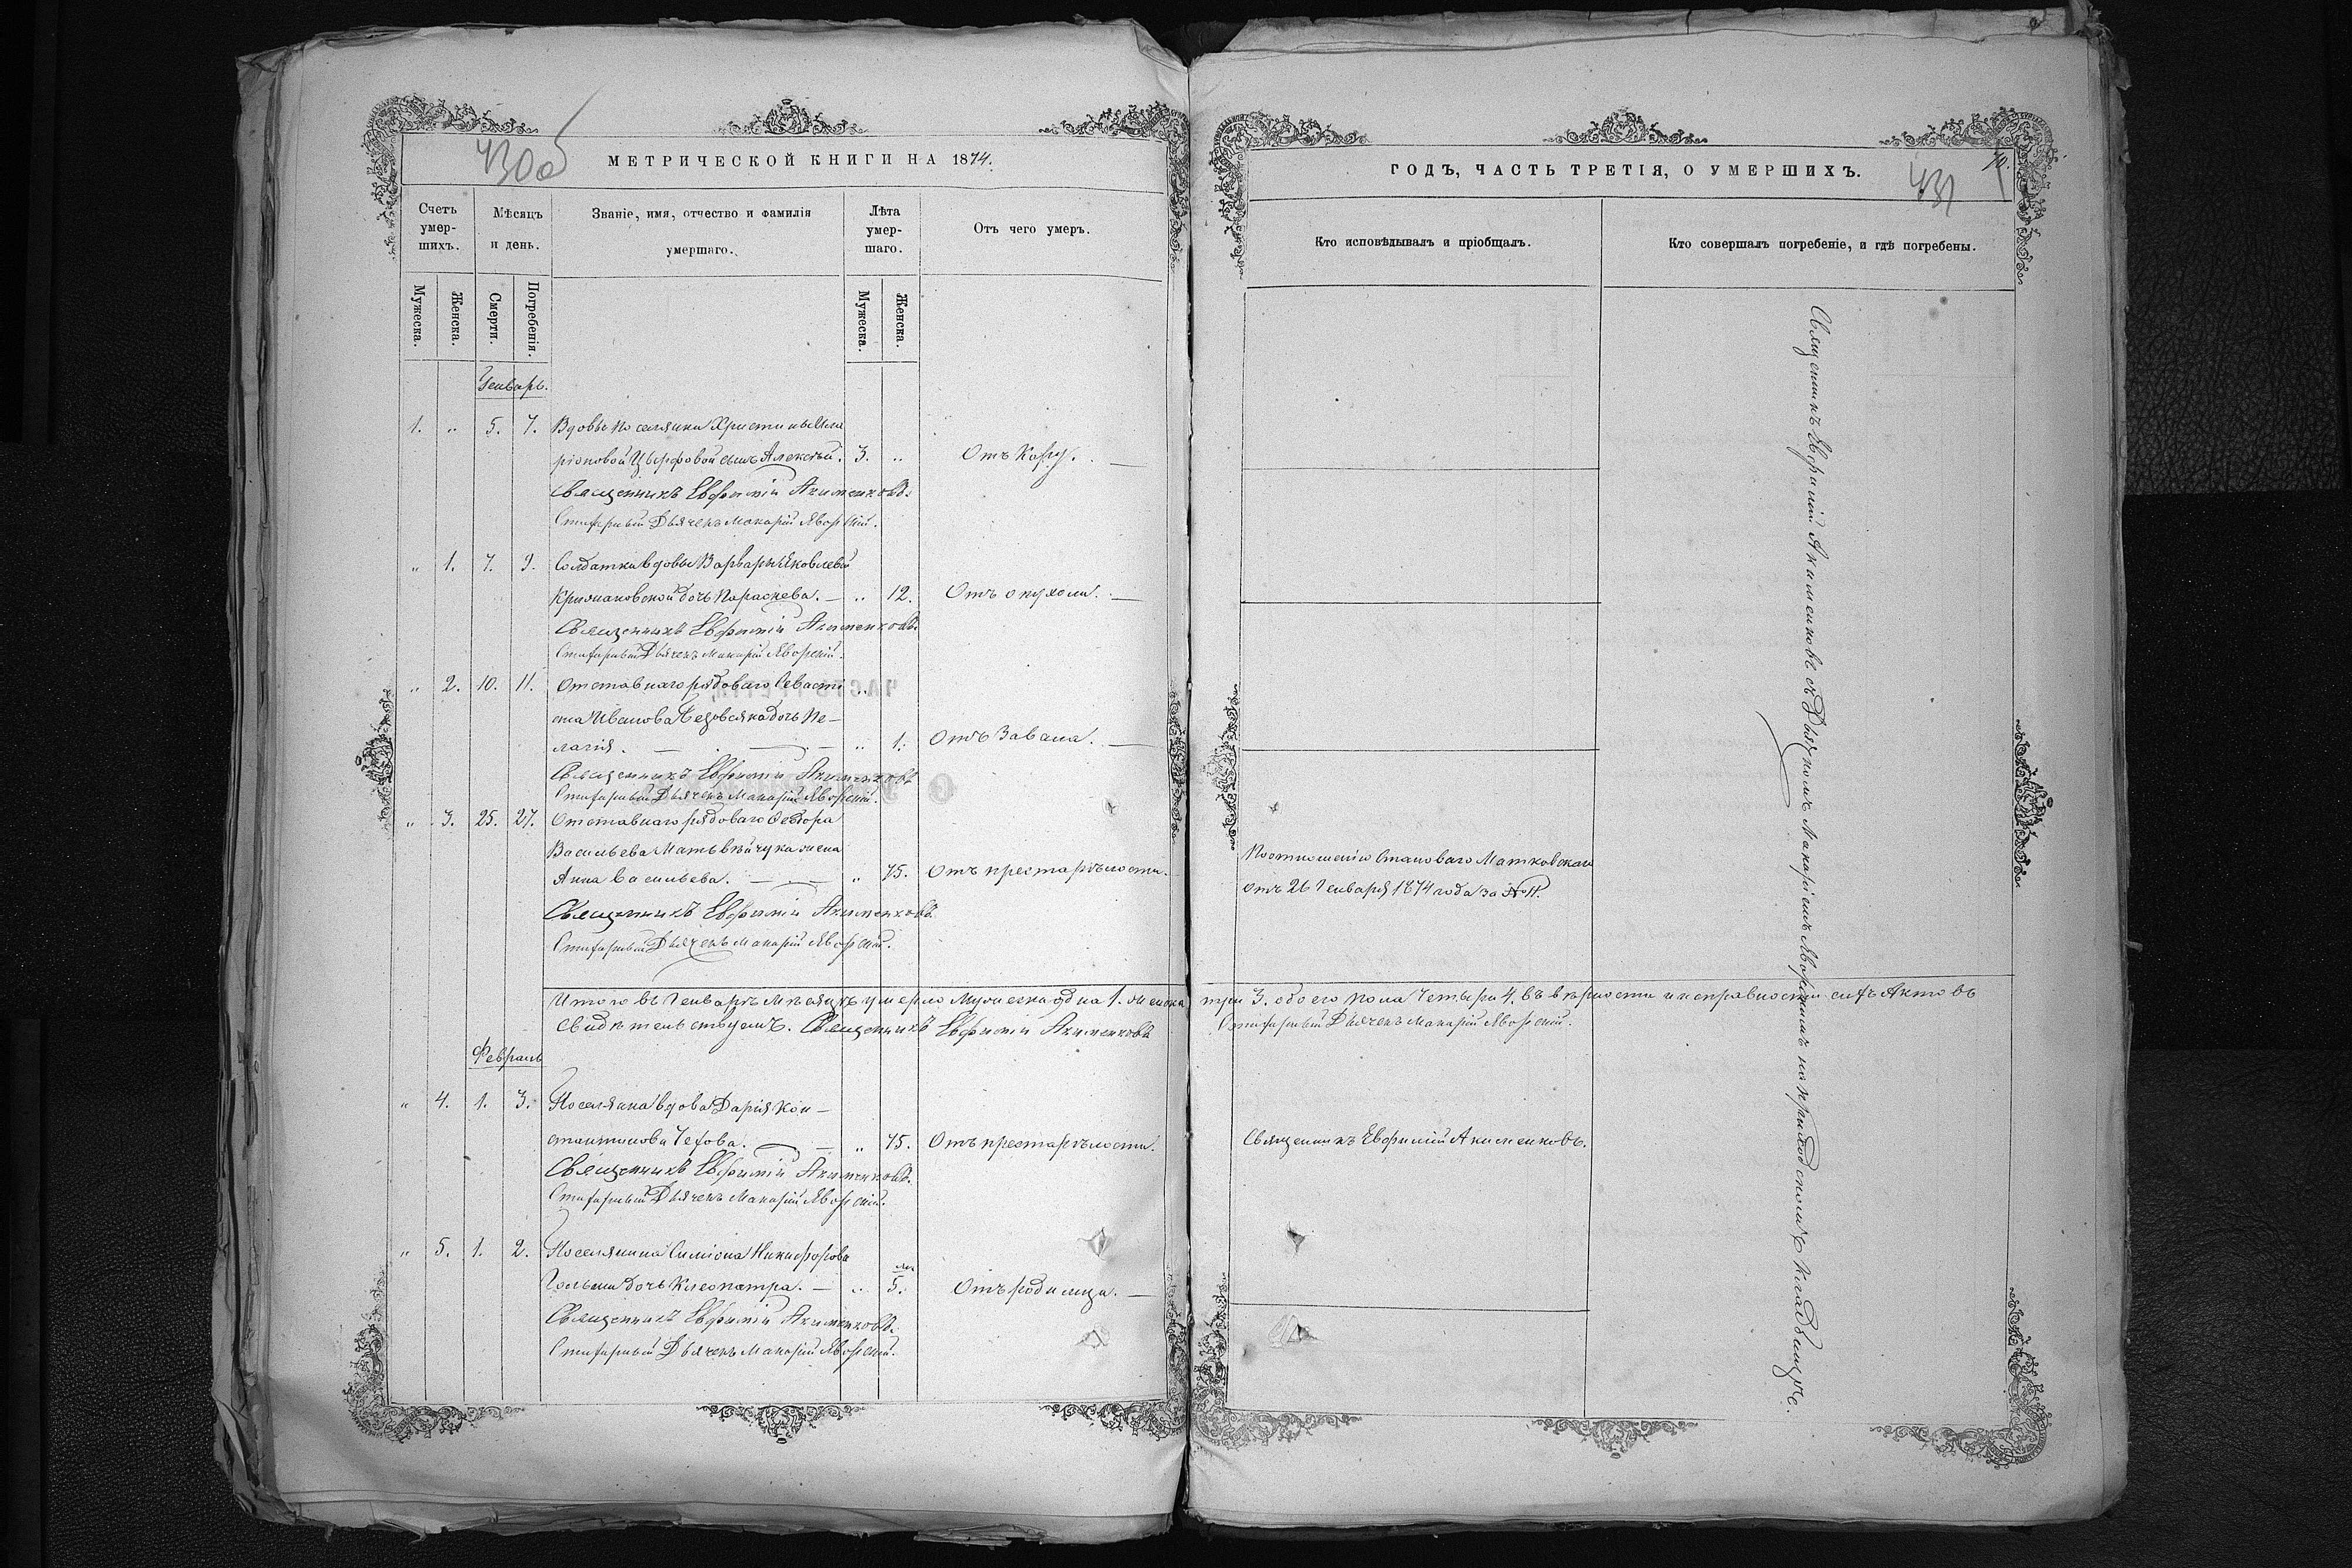 430об
МЕТРИЧЕСКОЙ КНИГИ НА 1874.
Счетъ умер-шихъ.
Мѣсяцъ и день.
Званіе, имя, отчество и фамилія умершаго.
Лѣта умер-шаго.
Отъ чего умеръ.
Мужеска.
Женска.
Смерти.
Погребенія.
Мужеска.
Женска.
Генварь.
1. " 5. 7. Вдовы поселянки Христины
Цырфовой сынъ Алексѣй. 3. " Отъ Кору.
Священникъ Евфимій Акименковъ.
Стихарный Дьячекъ Макарій Яворскій.
" 1. 7. 9. Солдатки вдовы Варвары Яковлевой
дочь Параскева. — " 12. Отъ опухоли.
Священникъ Евфимій Акименковъ.
Стихарный Дьячекъ Макарій Яворскій.
" 2. 10. 11. Отставнаго рядоваго Севасті
Иванова дочь Пе-
лагія. — " 1. Отъ Завала.
Священникъ Евфимій Акименковъ
Стихарный Дьячекъ Макарій Яворскій.
" 3. 25. 27. Отставнаго рядоваго Ѳеодора
Васильева Матьвѣйчука жена
Анна Васильева. — " 75. Отъ престарѣлости.
Священникъ Евфимій Акименковъ
Стихарный Дьячекъ Макарій Яворскій.
Итого въ Генварѣ мѣсяцѣ умерло Мужеска одна 1. женска
Свидѣтельствуемъ. Священникъ Евфимій Акименковъ
Февраль
" 4. 1. 3. Поселянка вдова Дарія Кон-
стантинова Чехова. — " 75. Отъ престарѣлости.
Священникъ Евфимій Акименковъ.
Стихарный Дьячекъ Макарій Яворскій.
" 5. 1. 2. Поселянина Симіона Никифорова
дочь Клеопатра. — " 5. Отъ родимца.
Священникъ Евфимій Акименковъ.
Стихарный Дьячекъ Макарій Яворскій.
431
ГОДЪ, ЧАСТЬ ТРЕТІЯ, О УМЕРШИХЪ.
Кто исповѣдывалъ и пріобщалъ.
Кто совершалъ погребеніе, и гдѣ погребены.
По отношенію Становаго Матковскаго
отъ 26 Генваря 1874 года за №
три 3. обоего пола Четыри 4. въ вѣрности и исправности сихъ Актовъ
Стихарный Дьячекъ Макарій Яворскій.
Священникъ Евфимій Акименковъ.
Священникъ Евфимій Акименковъ съ Дьячкомъ Макаріемъ Яворскимъ на приходскомъ кладбищѣ.